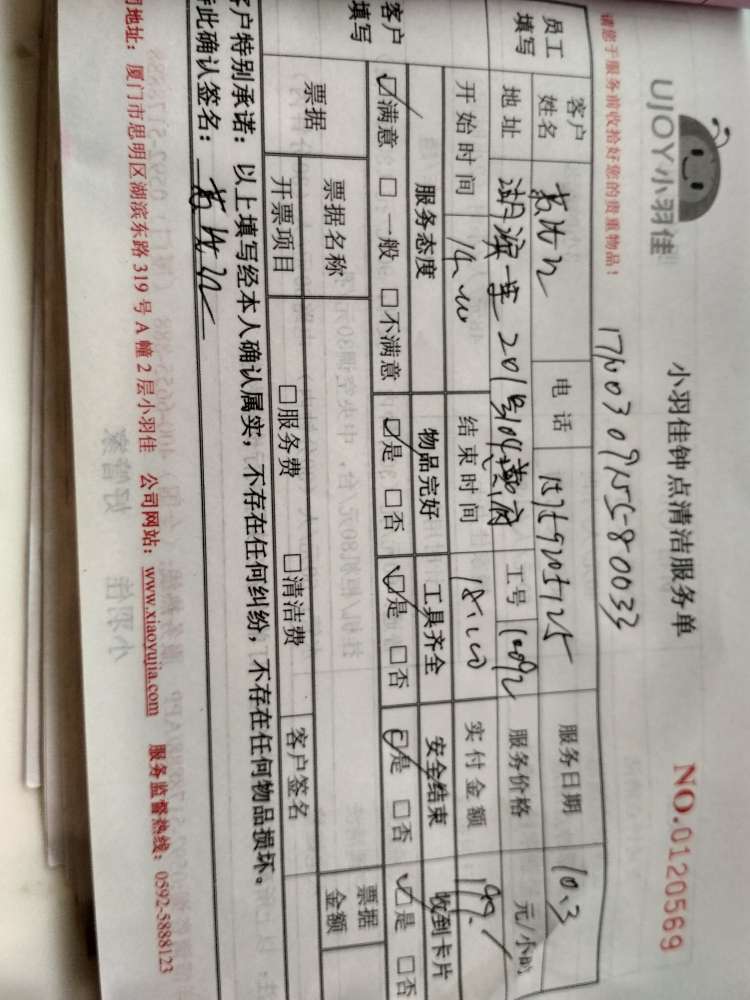 UJOY小羽佳
小羽佳钟点清洁服务单
NO.0120569
请您于服务前收拾好您的贵重物品！
员工填写
客户姓名
电话
服务日期 10.3
地址 湖滨一里201号
工号
服务价格 元/小时
开始时间 14:00
结束时间 18:00
实付金额
客户填写
服务态度 物品完好 工具齐全 安全结束 收到卡片
☑满意 □一般 □不满意 ☑是 □否 ☑是 □否 ☑是 □否 ☑是 □否
票据 票据名称 票据金额
开票项目 □服务费 □清洁费 客户签名
客户特别承诺：以上填写经本人确认属实，不存在任何纠纷，不存在任何物品损坏。
特此确认签名：
司地址：厦门市思明区湖滨东路319号A幢2层小羽佳 公司网站：www.xiaoyujia.com 服务监督热线：0592-5888123